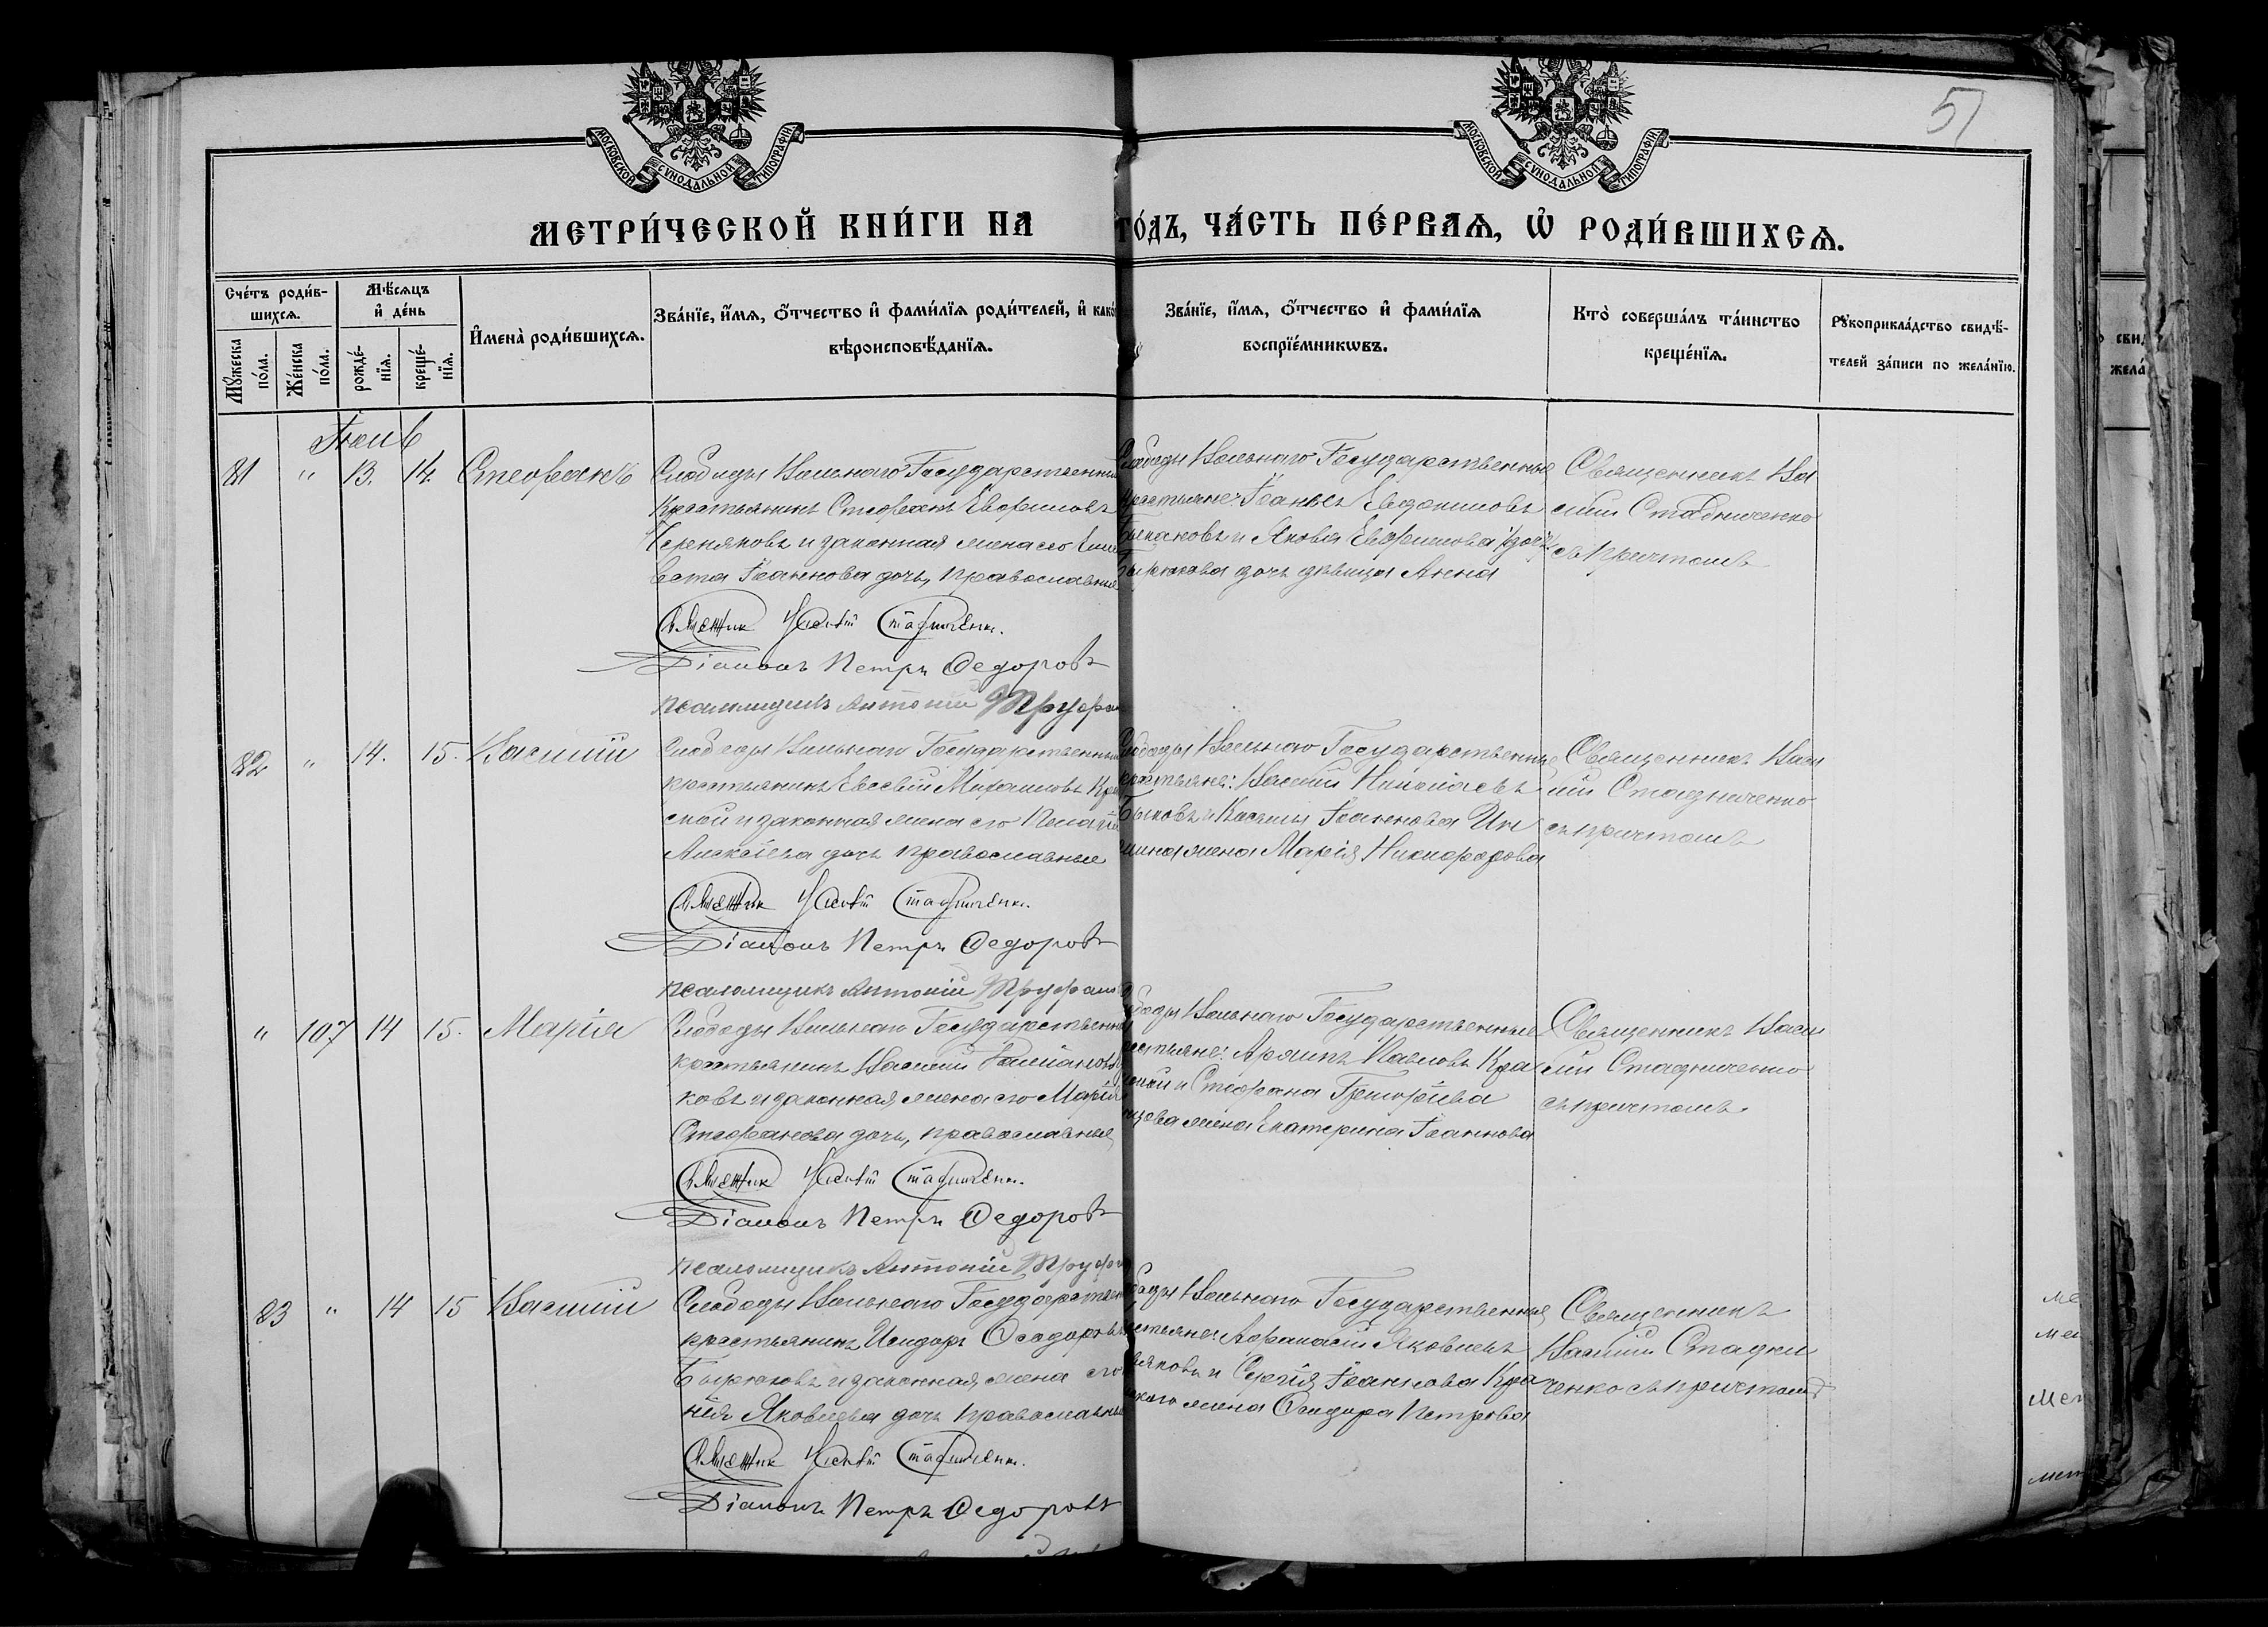 51
МОСКОВСКОЙ СѴНОДАЛЬНОЙ ТИПОГРАФІИ
МОСКОВСКОЙ СѴНОДАЛЬНОЙ ТИПОГРАФІИ
МЕТРИ́ЧЕСКОЙ КНИ́ГИ НА ГО́ДЪ, ЧА́СТЬ ПЕ́РВАѦ, Ѡ҆ РОДИ́ВШИХСѦ.
Сче́тъ роди́в-
шихсѧ.
Мꙋ́жеска по́ла.
Же́нска по́ла.
Мѣ́сѧцъ
и҆ де́нь
рожде́-нїѧ.
креще́-нїѧ.
И҆мена̀ роди́вшихсѧ.
Зва́нїе, и҆́мѧ, ѻ҆́тчество и҆ фами́лїѧ роди́телей, и҆ како́
вѣроисповѣ́данїѧ.
Зва́нїе, и҆́мѧ, ѻ҆́тчество и҆ фами́лїѧ
воспрїе́мникѡвъ.
Кто̀ соверша́лъ та́инство
креще́нїѧ.
Рꙋкоприкла́дство свидѣ́-
телей за́писи по жела́нїю.
81 " 13. 14. Стефанъ
Слободы Вольнаго Государственный
крестьянинъ Стефанъ Евфимовъ
Черняковъ и законная жена его Елиса
вета Іоаннова дочь, православные
Священник Василій Стадниченко.
Діаконъ Петръ Федоровъ
псаломщикъ Антоній Труфан
Слободы Вольнаго Государственные
крестьяне: Іоаннъ Евдокимовъ
и Якова Евфимова
Бирюкова дочь дѣвица Анна
Священникъ Ва
силій Стадниченко
съ причтомъ
82 " 14. 15. Василій
Слободы Вольнаго Государственный
крестьянинъ Евсевій Михаиловъ Кра
и законная жена его Пелагія
Алексѣева дочь православные
Священник Василій Стадниченко.
Діаконъ Петръ Федоровъ
псаломщикъ Антоній Труфан
Слободы Вольнаго Государственные
крестьяне: Василій Николаевъ
Быковъ и Іоаннова
жена Марія Никифорова
Священникъ Васи
лій Стадниченко
съ причтомъ
" 107 14 15. Марія
Слободы Вольнаго Государственный
крестьянинъ Василій
ковъ и законная жена его Марія
Стефанова дочь, православные
Священник Василій Стадниченко.
Діаконъ Петръ Федоровъ
псаломщикъ Антоній Труфан
Слободы Вольнаго Государственные
крестьяне: Архипъ Павловъ Кра
и Стефана Григорьева
жена Екатерина Іоаннова
Священникъ Васи
лій Стадниченко
съ причтомъ.
83 " 14 15 Василій
Слободы Вольнаго Государствен
крестьянинъ Исидоръ Феодоровъ
Бирюковъ и законная жена его
нія Яковлева дочь православные
Священник Василій Стадниченко.
Діаконъ Петръ Федоровъ
Слободы Вольнаго Государственные
крестьяне: Афанасій Яковлевъ
и Сергія Іоаннова Кра
жена Петрова
Священникъ
Василій Стадни
ченко съ причтомъ